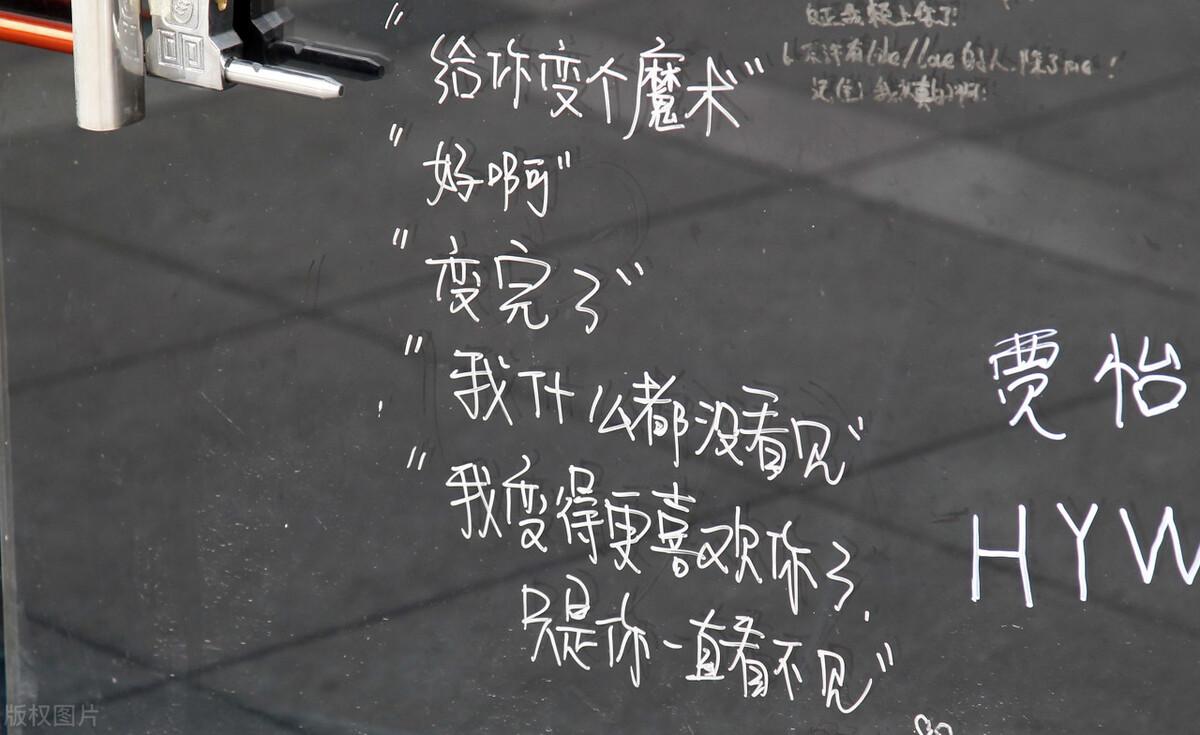 "给你变个魔术"
"好啊"
"变完了"
"我什么都没看见"
"我变得更喜欢你了，
只是你一直看不见"
贾怡
HYW
记住
版权图片